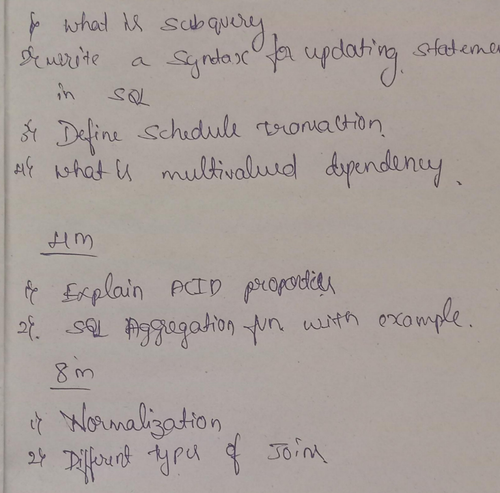 1) what is subquery
2) write a syntax for updating stateme
in SQL
3) Define schedule tranaction.
4) what is multivalued dependency.
4m
1) Explain ACID properties
2). SQL Aggregation fun with example.
8m
1) Normalization
2) Different types of Joins